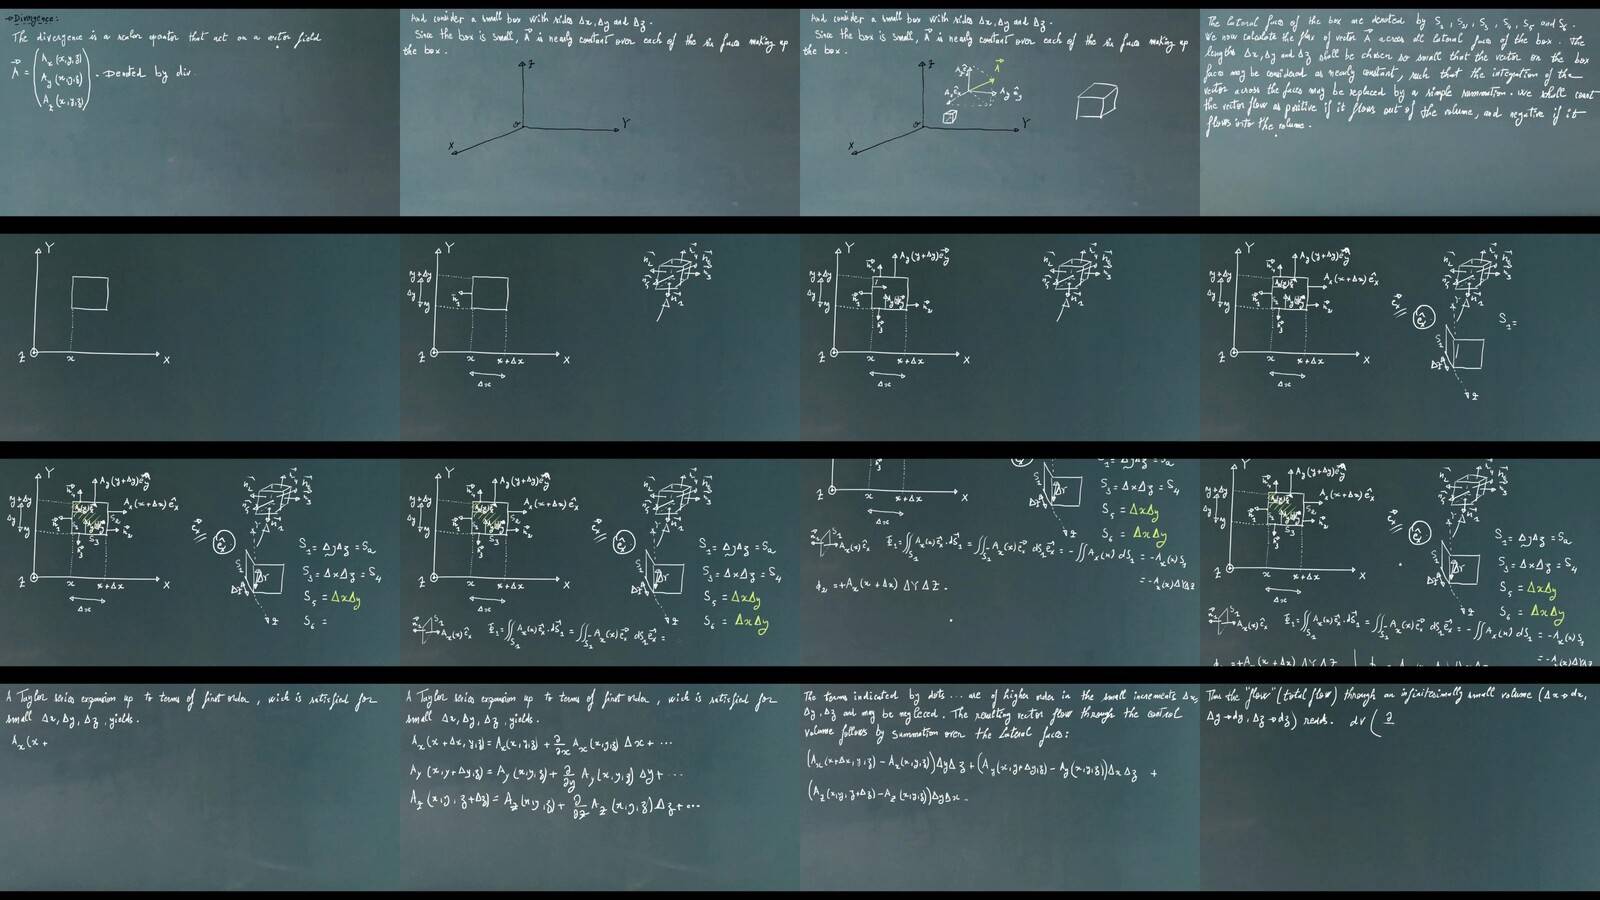 → Divergence:
The divergence is a scalar operator that act on a vector field
A⃗ = (A_x (x,y,z)
A_y (x,y,z)
A_z (x,y,z)) . Denoted by div.
And consider a small box with sides Δx, Δy and Δz.
Since the box is small, A⃗ is nearly constant over each of the six faces making up
the box.
Z
o
Y
X
And consider a small box with sides Δx, Δy and Δz.
Since the box is small, A⃗ is nearly constant over each of the six faces making up
the box.
Z
A⃗
o
Y
X
The lateral faces of the box are denoted by S₁, S₂, S₃, S₄, S₅ and S₆.
We now calculate the flux of vector A⃗ across all lateral faces of the box. The
lengths Δx, Δy and Δz shall be chosen so small that the vector on the box
faces may be considered as nearly constant, such that the integration of the
vector across the faces may be replaced by a simple summation. We shall count
the vector flow as positive if it flows out of the volume, and negative if it
flows into the volume.
Y
Z
x
X
Y
y+Δy
Δy
y
Z
x
x+Δx
X
Δx
Y
A_y(y+Δy)e⃗_y
y+Δy
Δy
y
Z
x
x+Δx
X
Δx
Y
A_y(y+Δy)e⃗_y
y+Δy
A_x(x+Δx) ê_x
Δy
y
S₁ =
Z
x
x+Δx
X
Δx
Y
A_y(y+Δy)e⃗_y
y+Δy
A_x(x+Δx) ê_x
Δy
y
S₁ = ΔyΔz = S₂
S₃ = ΔxΔz = S₄
Z
x
x+Δx
X
S₅ = ΔxΔy
Δx
S₆ =
Y
A_y(y+Δy)e⃗_y
y+Δy
A_x(x+Δx) ê_x
Δy
y
S₁ = ΔyΔz = S₂
S₃ = ΔxΔz = S₄
Z
x
x+Δx
X
S₅ = ΔxΔy
Δx
S₆ = ΔxΔy
A_x(x) ê_x
Φ₁ = ∬_S₁ A_x(x) e⃗_x . dS⃗₁ = ∬_S₁ -A_x(x) e⃗_x dS₁ e⃗_x =
S₁ = ΔyΔz = S₂
Z
x
x+Δx
X
S₃ = ΔxΔz = S₄
Δx
S₅ = ΔxΔy
S₆ = ΔxΔy
A_x(x) ê_x
Φ₁ = ∬_S₁ A_x(x) e⃗_x . dS⃗₁ = ∬_S₁ -A_x(x) e⃗_x dS₁ e⃗_x = -∬ A_x(x) dS₁ = -A_x(x) S₁
= -A_x(x)ΔyΔz
= +A_x(x+Δx) ΔYΔZ.
Y
A_y(y+Δy)e⃗_y
y+Δy
A_x(x+Δx) ê_x
Δy
y
S₁ = ΔyΔz = S₂
S₃ = ΔxΔz = S₄
Z
x
x+Δx
X
S₅ = ΔxΔy
Δx
S₆ = ΔxΔy
A_x(x) ê_x
Φ₁ = ∬_S₁ A_x(x) e⃗_x . dS⃗₁ = ∬_S₁ -A_x(x) e⃗_x dS₁ e⃗_x = -∬ A_x(x) dS₁ = -A_x(x) S₁
= -A_x(x)ΔyΔz
A Taylor series expansion up to terms of first order, wich is satisfied for
small Δx, Δy, Δz yields.
A_x(x +
A Taylor series expansion up to terms of first order, wich is satisfied for
small Δx, Δy, Δz yields.
A_x(x+Δx,y,z) = A_x(x,y,z) + ∂/∂x A_x(x,y,z) Δx + ...
A_y(x,y+Δy,z) = A_y(x,y,z) + ∂/∂y A_y(x,y,z) Δy + ...
A_z(x,y,z+Δz) = A_z(x,y,z) + ∂/∂z A_z(x,y,z) Δz + ...
The terms indicated by dots ... are of higher order in the small increments Δx,
Δy, Δz and may be negleced. The resulting vector flow through the control
volume follows by summation over the lateral faces:
(A_x(x+Δx,y,z) - A_x(x,y,z))ΔyΔz + (A_y(x,y+Δy,z) - A_y(x,y,z))ΔxΔz +
(A_z(x,y,z+Δz) - A_z(x,y,z))ΔyΔx.
Thus the "flow" (total flow) through an infinitesimally small volume (Δx→dx,
Δy→dy, Δz→dz) reads. dV(∂